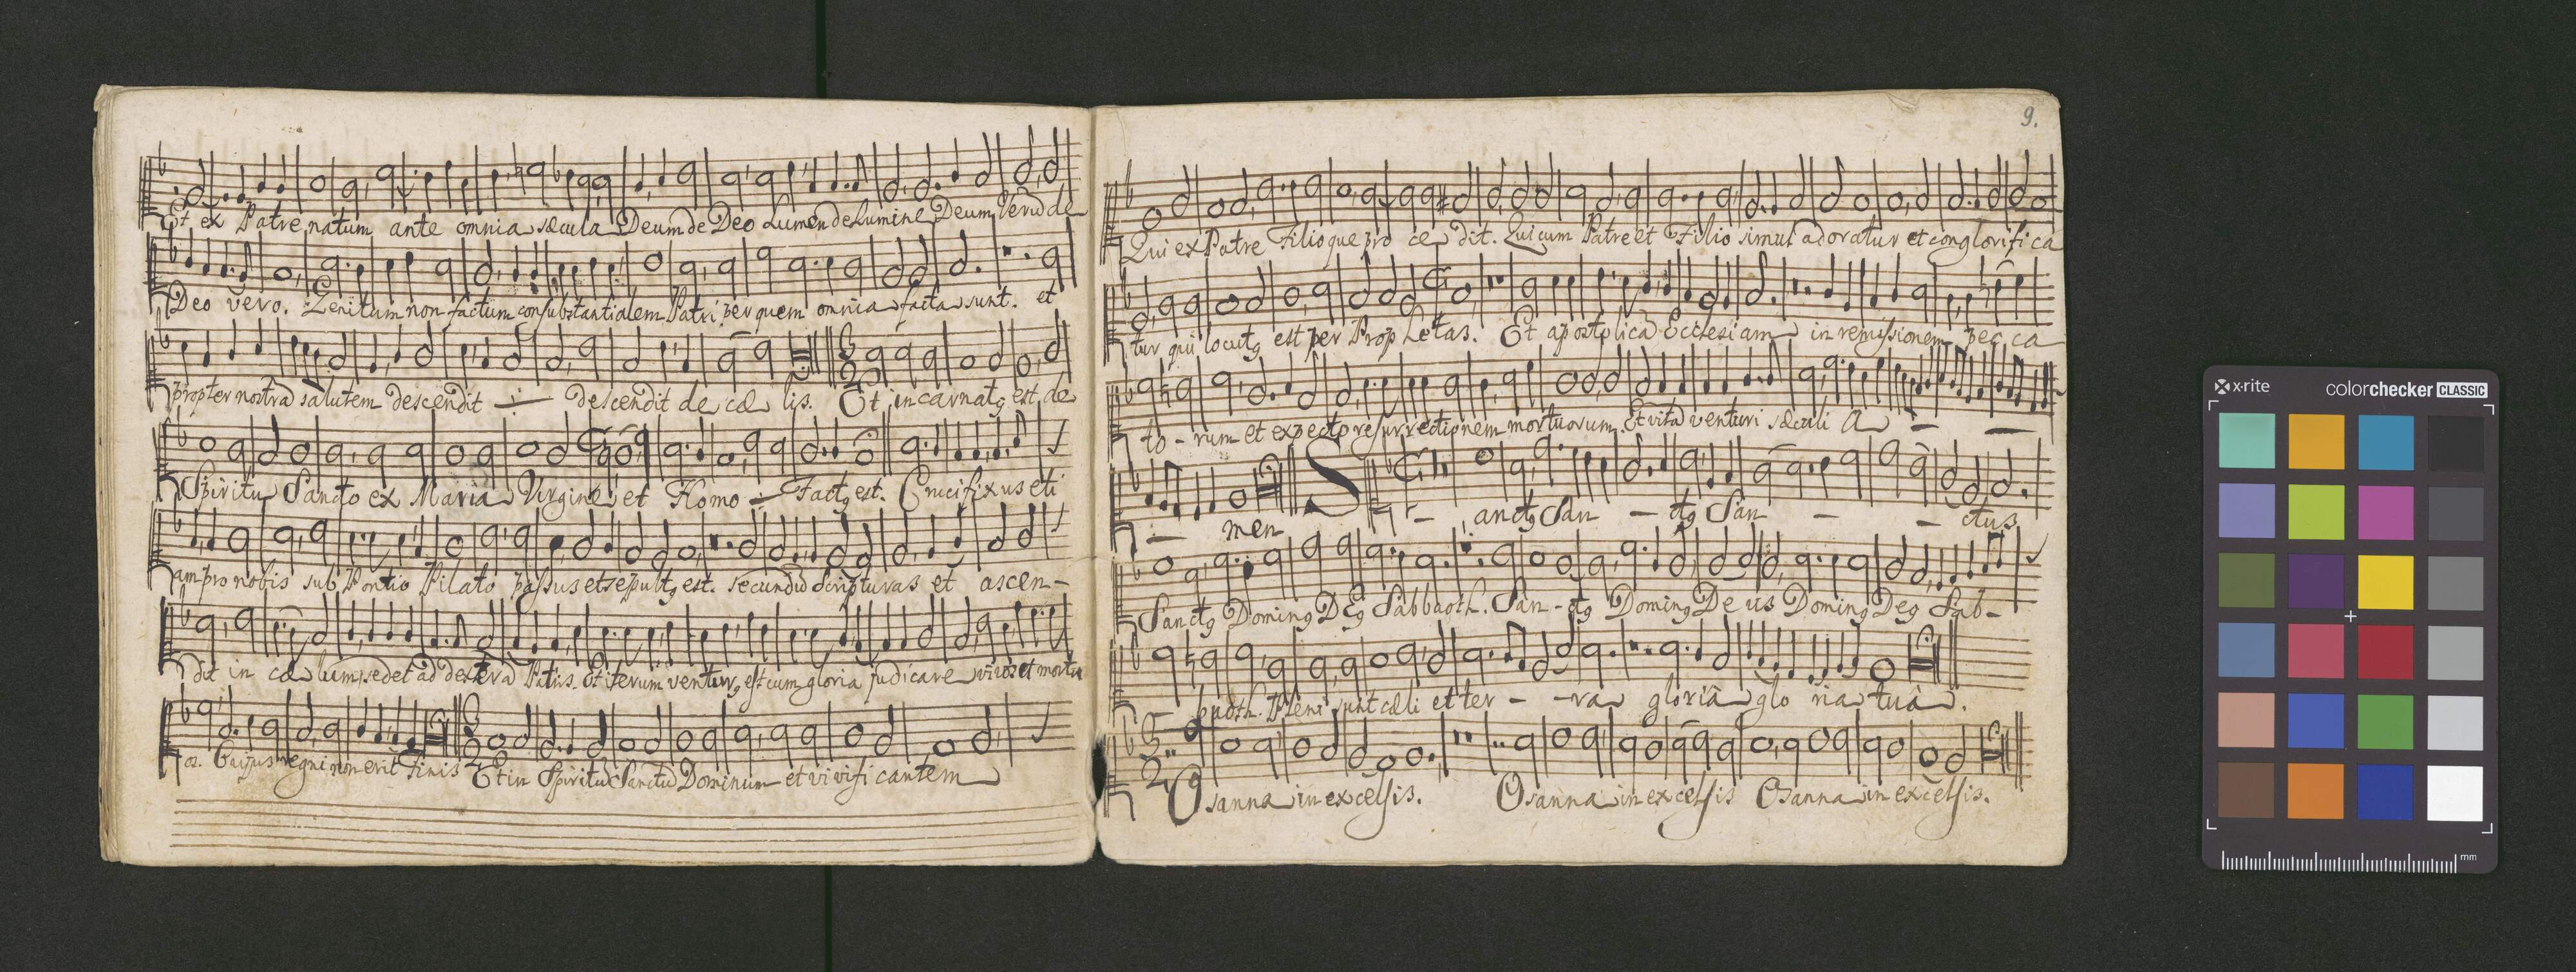 Et ex Patre natum ante omnia sæcula Deum de Deo Lumen de Lumine Deum Verũ de
Deo vero. Genitum non factum consubstantialem Patri per quem omnia facta sunt. et
propter nostrã salutem descendit -:- descendit de cæ lis. Et incarnatꝰ est de
Spiritu Sancto ex Maria Virgine et Homo -:- Factꝰ est. Crucifixus eti
am pro nobis sub Pontio Pilato passus et sepultꝰ est. secundũ Scripturas et ascen-
dit in cæ lum, sedet ad dexterã Patris. Et iterum venturꝰ est cum gloria judicare vivos et mortu
os. Cuijus regni non erit Finis Et in Spiritũ Sanctũ Dominum et vivifi cantem
9.
Qui ex Patre Filioque pro ce dit. Qui cum Patre et Filio simul adoratur et conglorifi ca
tur qui locutꝰ est per Prophetas. Et apostolicã Ecclesiam in remissionem pec ca
to - rum et expecto resurrectionem mortuorum. Et vitã venturi sæculi A - -
- men S - anctꝰ San - ctꝰ San - - ctus
Sanctꝰ Dominꝰ Deꝰ Sabbaoth. San - ctꝰ Dominꝰ De us Dominꝰ Deꝰ Sab-
baoth. Pleni sunt cæli et ter - - ra gloriã glo ria tuã.
Osanna in excelsis. Osanna in excelsis Osanna in excelsis.
x·rite colorchecker CLASSIC
mm